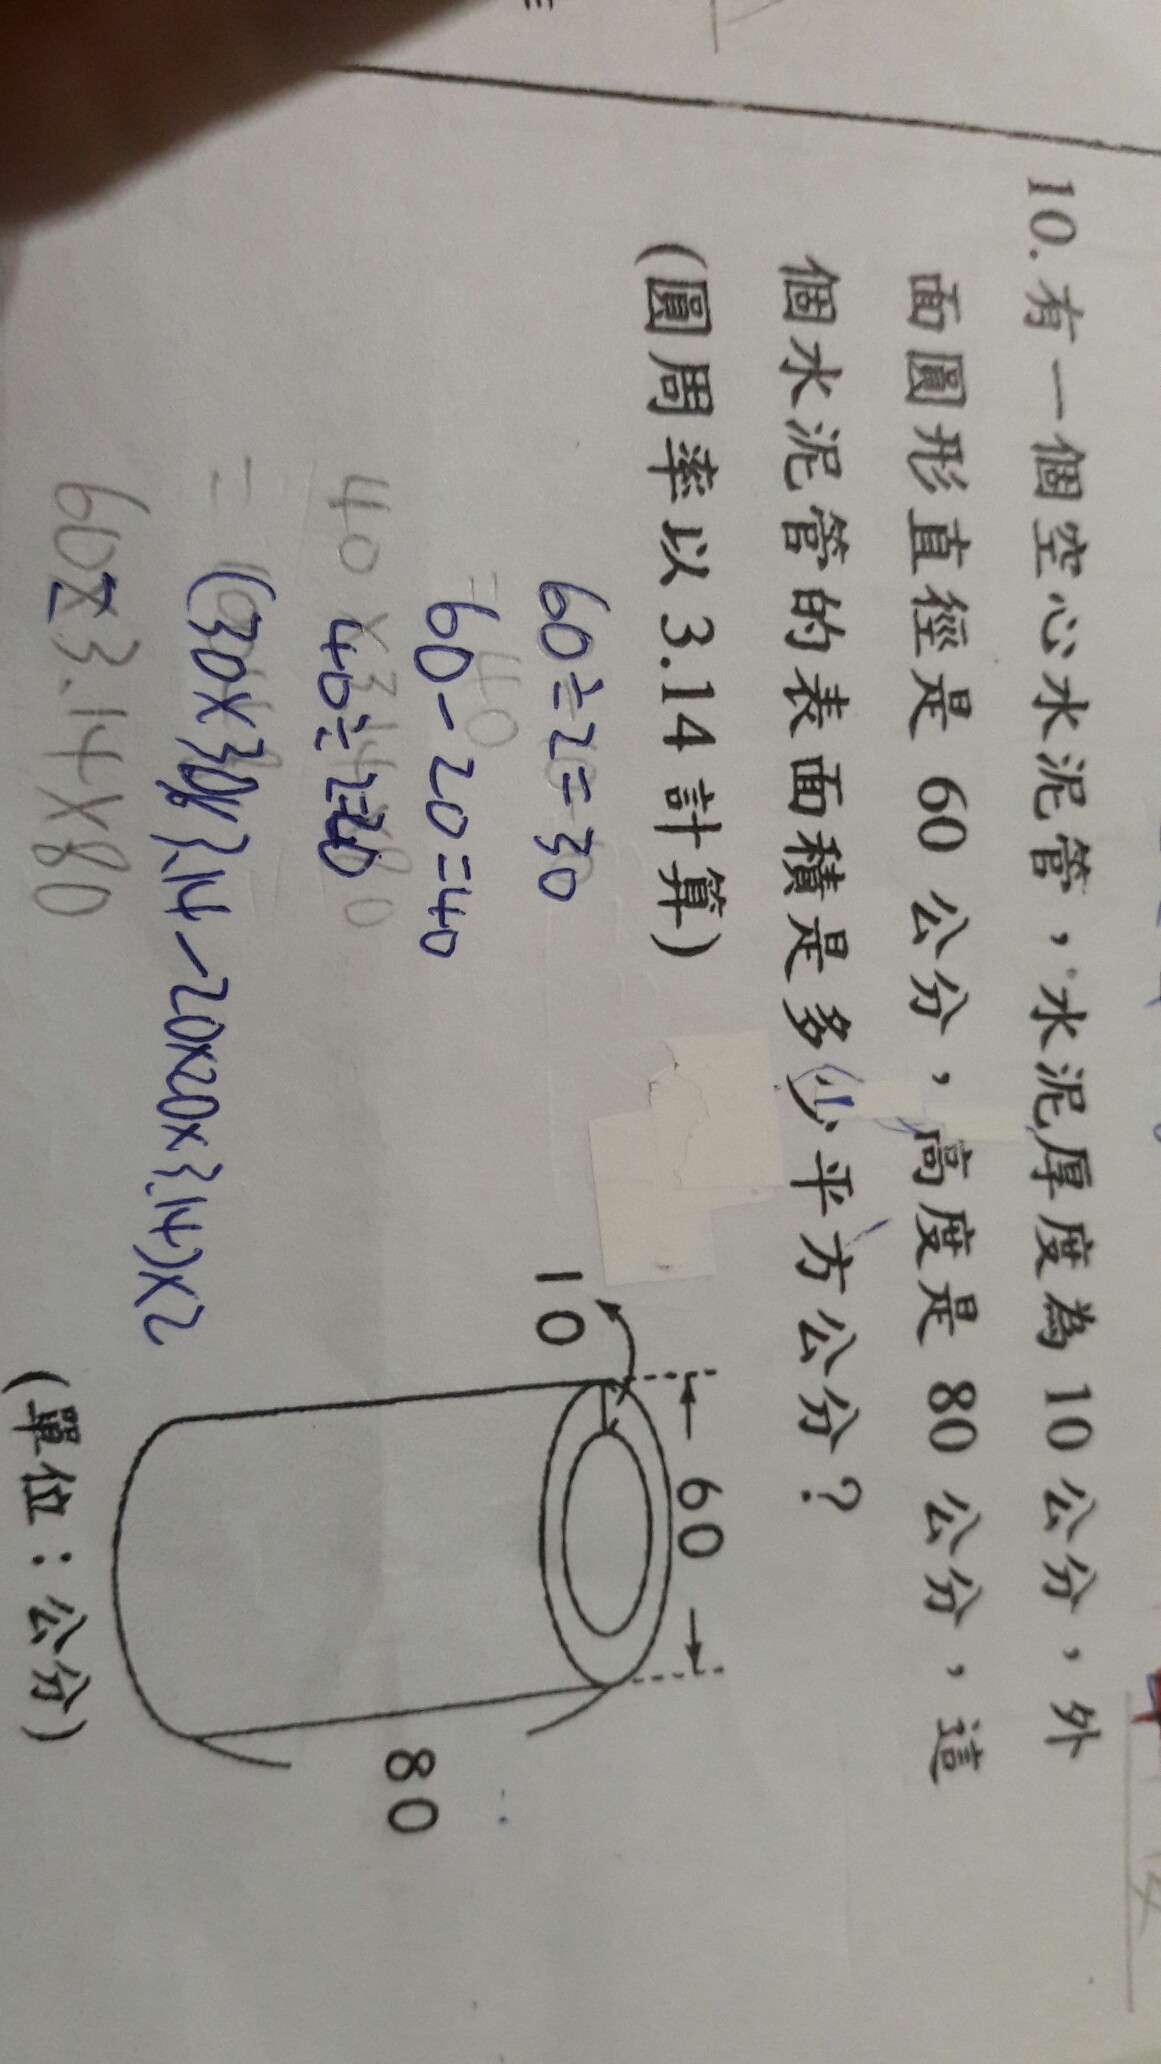 10. 有一個空心水泥管，水泥厚度為 10 公分，外
面圓形直徑是 60 公分，高度是 80 公分，這
個水泥管的表面積是多少平方公分？
(圓周率以 3.14 計算)
60÷2=30
60-20=40
40÷2=20
(30×30×3.14-20×20×3.14)×2
60×3.14×80
10
60
80
(單位：公分)